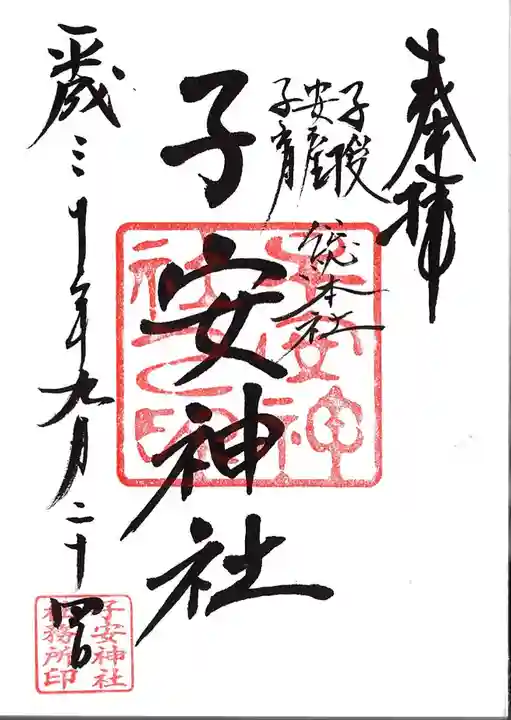 奉拝
子授
安産
子育
総本社
子安神社
平成三十年九月二十四日
子安神社之印
子安神社
社務所印